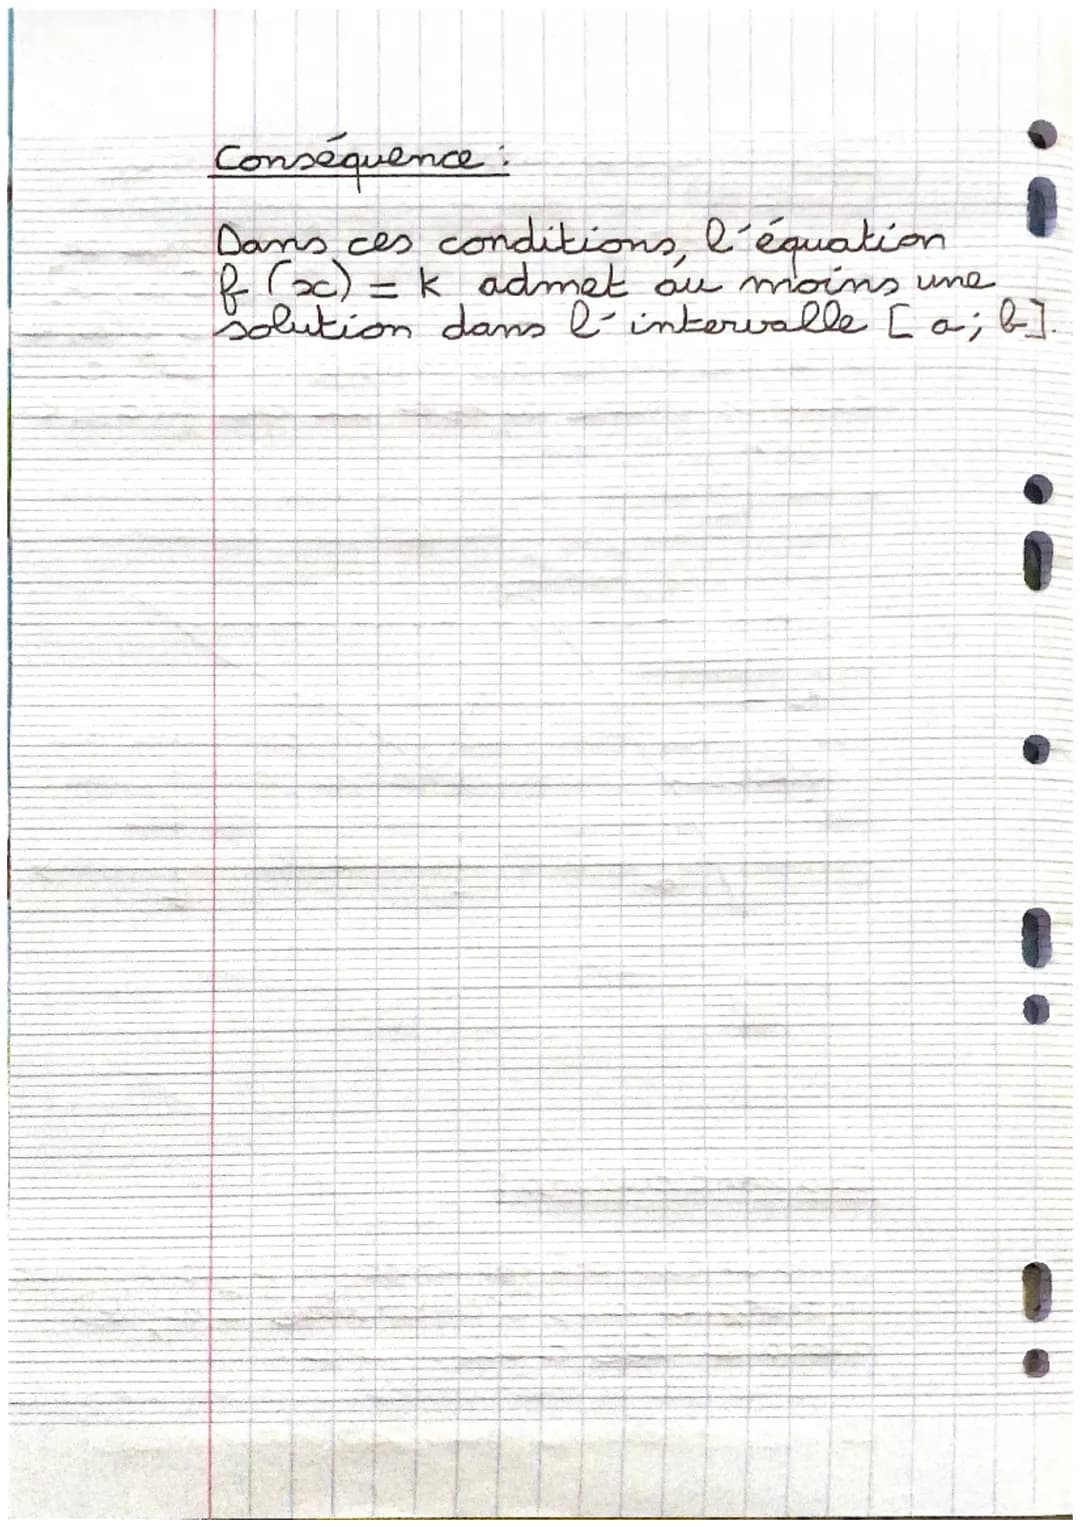 Conséquence :
Dans ces conditions, l'équation
f(x) = k admet au moins une
solution dans l'intervalle [a; b].